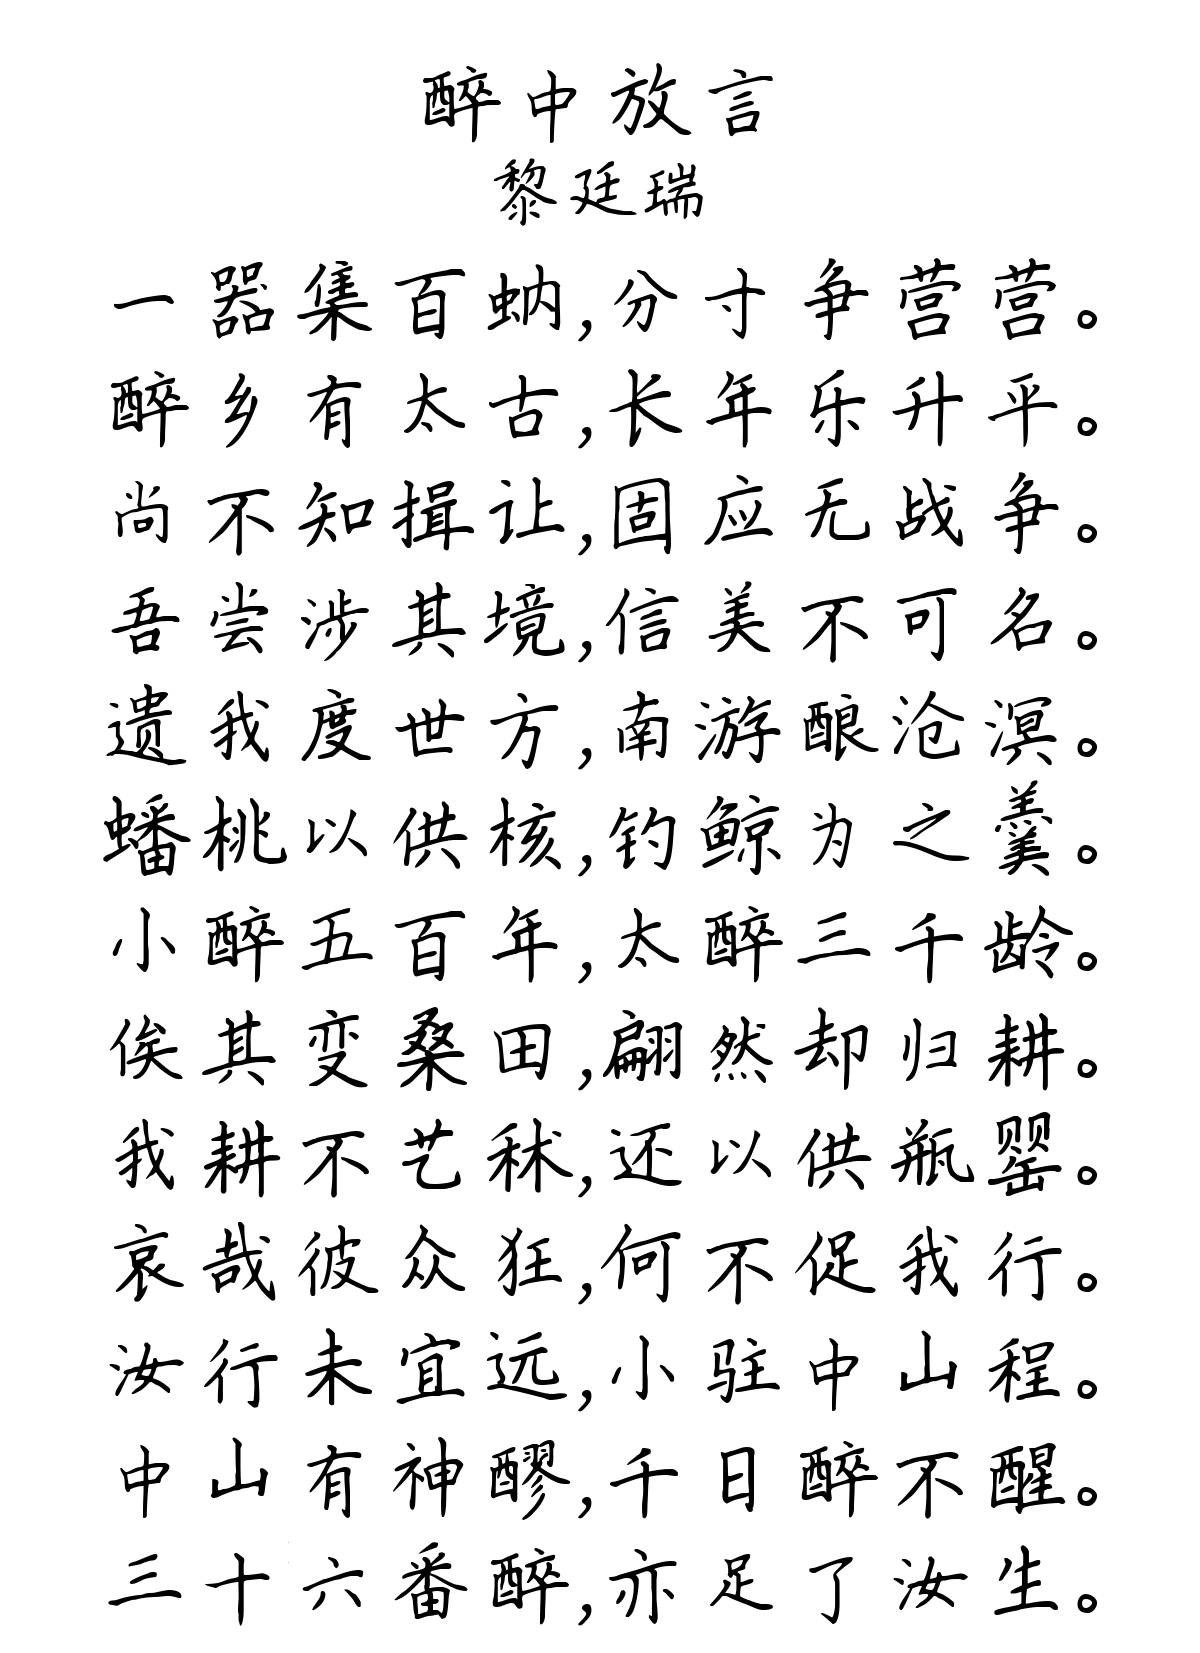 醉中放言
黎廷瑞
一器集百蚋,分寸争营营。
醉乡有太古,长年乐升平。
尚不知揖让,固应无战争。
吾尝涉其境,信美不可名。
遗我度世方,南游酿沧溟。
蟠桃以供核,钓鲸为之羹。
小醉五百年,太醉三千龄。
俟其变桑田,翩然却归耕。
我耕不艺秫,还以供瓶罂。
哀哉彼众狂,何不促我行。
汝行未宜远,小驻中山程。
中山有神醪,千日醉不醒。
三十六番醉,亦足了汝生。